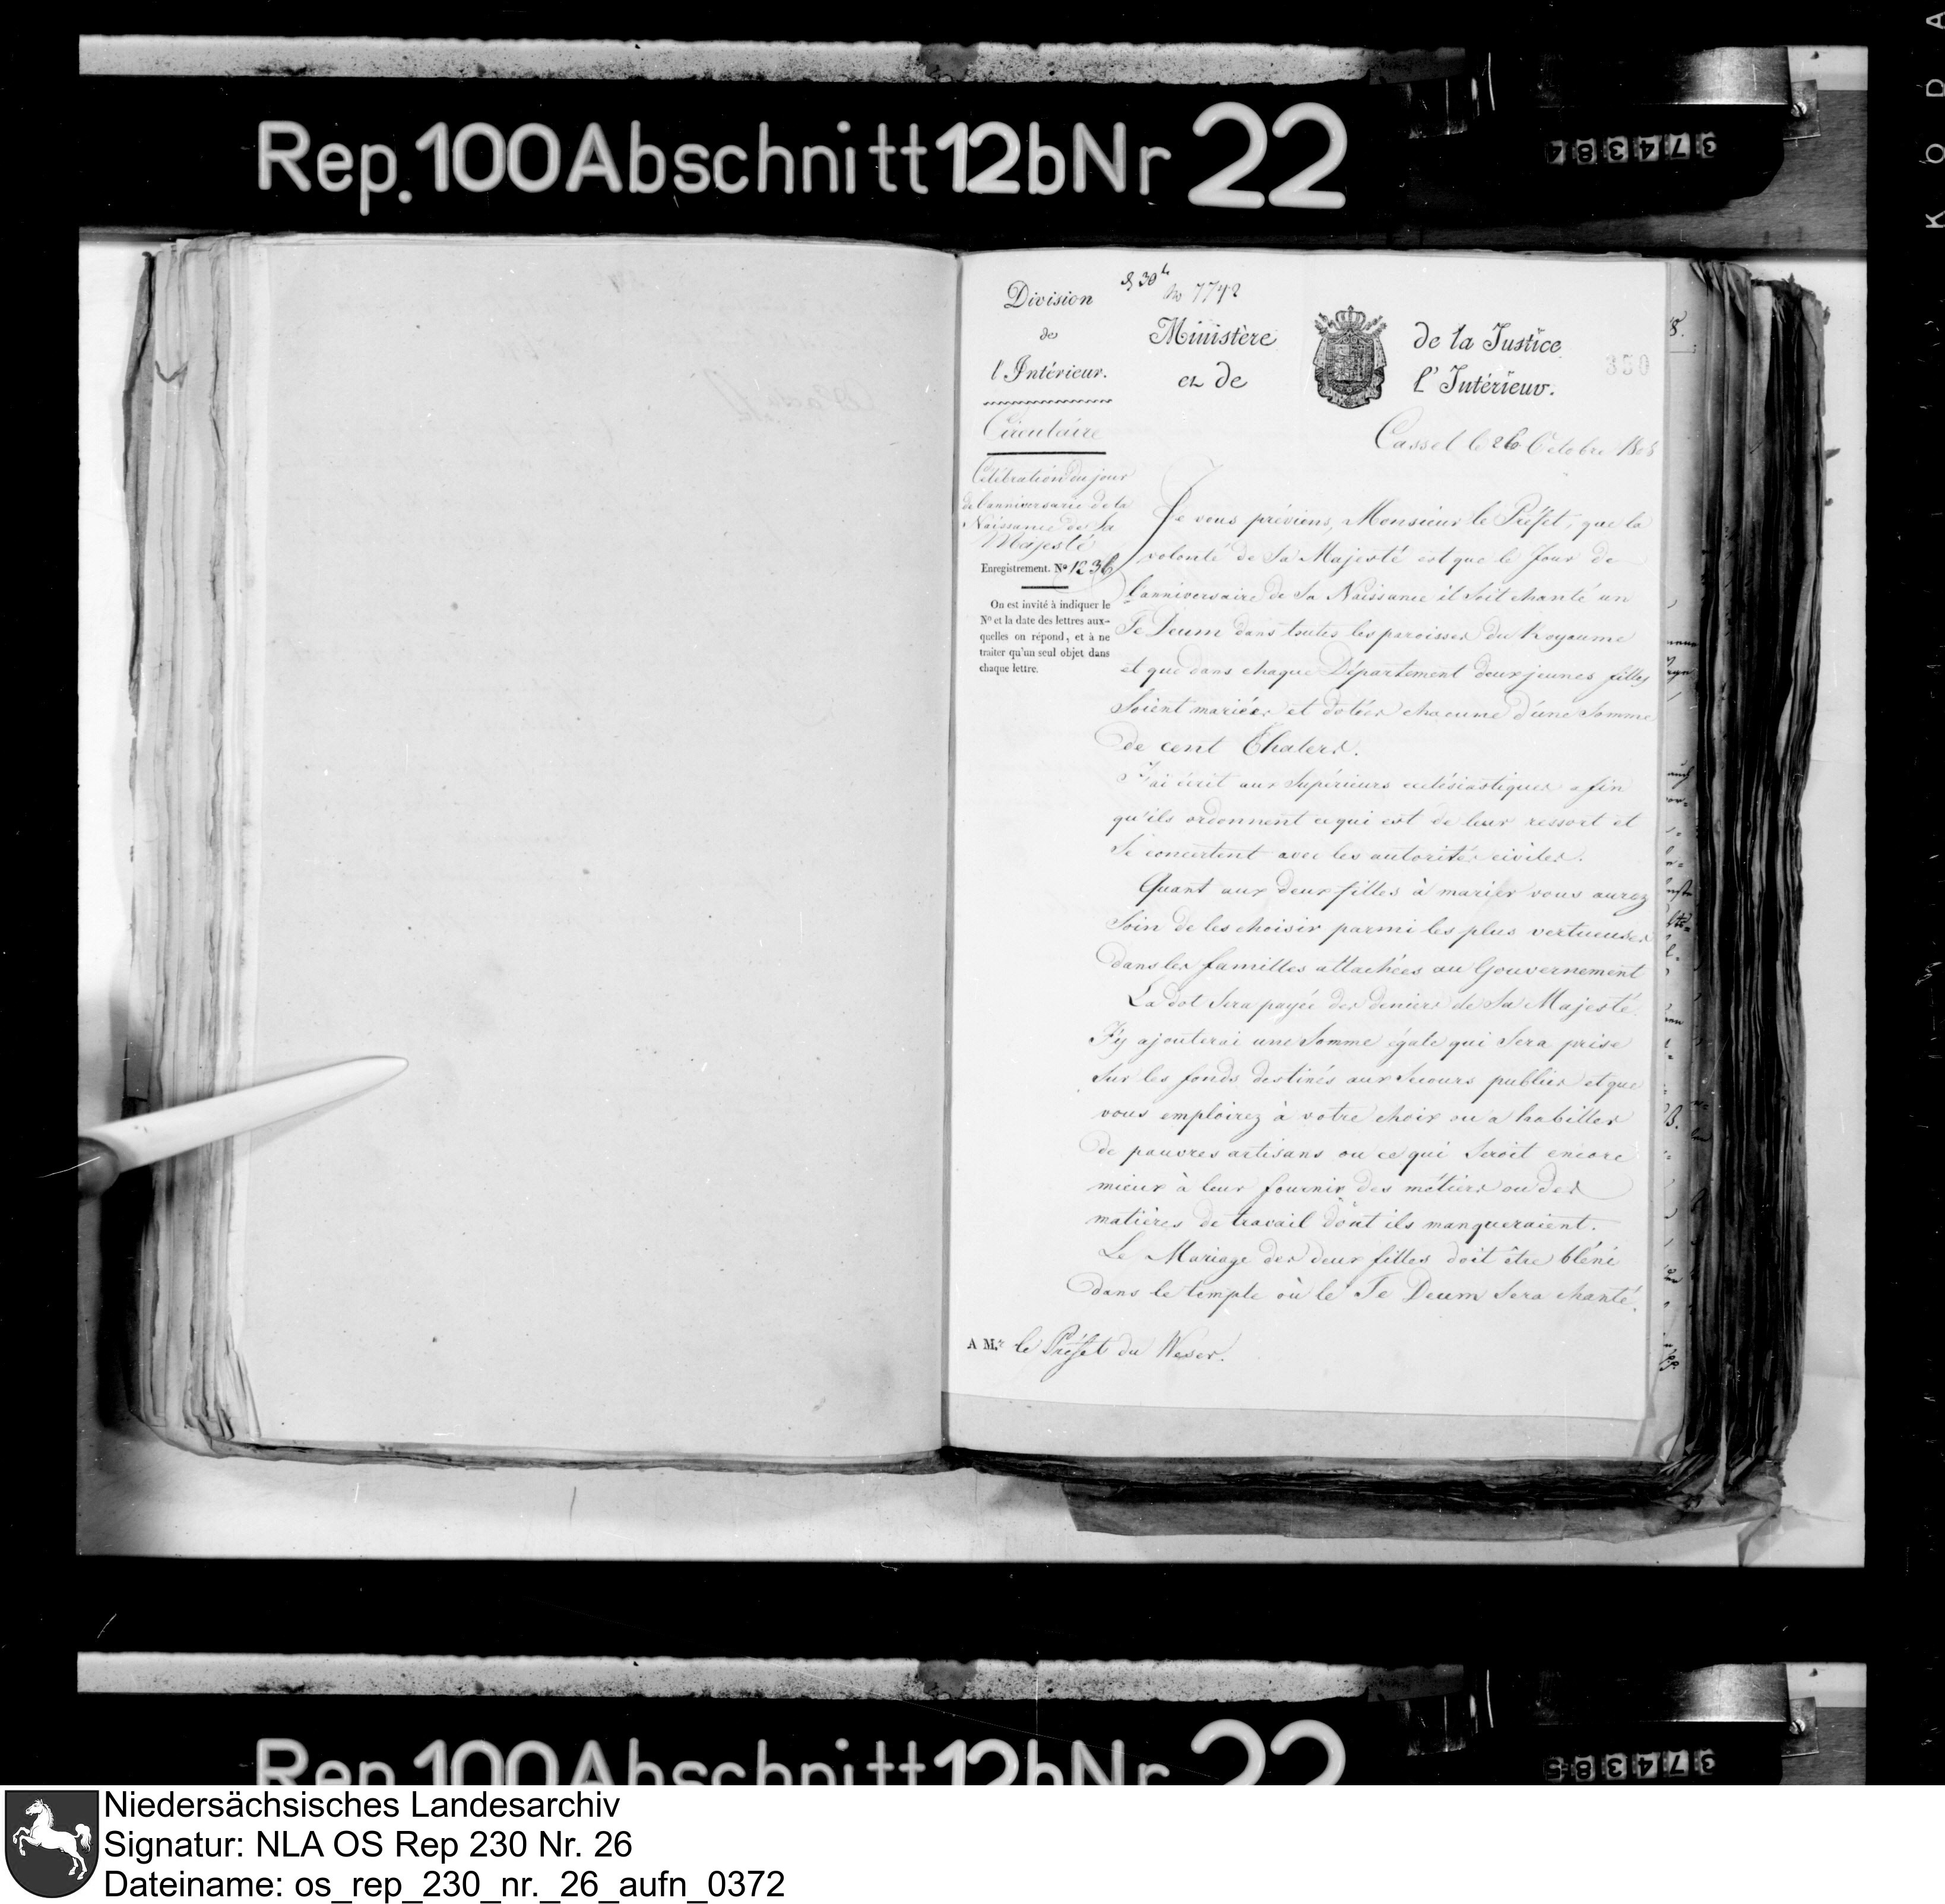 Rep. 100 Abschnitt 12b Nr 22
374384
KODA
No 7742
Division
de
l'Intérieur.
Ministère de la Justice
et de l'Intérieur.
350
Circulaire
Cassel le 26 Octobre 1808
Célébration du jour
de l'anniversaire de la
Naissance de Sa
Majesté
Enregistrement. No 1236
On est invité à indiquer le
No et la date des lettres aux-
quelles on répond, et à ne
traiter qu'un seul objet dans
chaque lettre.
Je vous préviens, Monsieur le Préfet, que la
volonté de Sa Majesté est que le Jour de
l'anniversaire de Sa Naissance il soit chanté un
Te Deum dans toutes les paroisses du Royaume
et que dans chaque Département deux jeunes filles
Soient mariées et dotées chacune d'une Somme
de cent Thalers.
J'ai écrit aux Supérieurs ecclésiastiques afin
qu'ils ordonnent ce qui est de leur ressort et
Se concertent avec les autorités civiles.
Quant aux deux filles à marier vous aurez
Soin de les choisir parmi les plus vertueuses
dans les familles attachées au Gouvernement
La dot Sera payée des deniers de Sa Majesté.
J'y ajouterai une Somme égale qui Sera prise
Sur les fonds destinés aux Secours publics et que
vous emploirez à votre choix ou a habiller
de pauvres artisans ou ce qui Seroit encore
mieux à leur fournir des métiers ou des
matières de travail dont ils manqueraient.
Le Mariage des deux filles doit être béni
dans le temple où le Te Deum Sera chanté.
A Mr. le Préfet du Weser.
Rep. 100 Abschnitt 12b Nr 22
374385
Niedersächsisches Landesarchiv
Signatur: NLA OS Rep 230 Nr. 26
Dateiname: os_rep_230_nr._26_aufn_0372